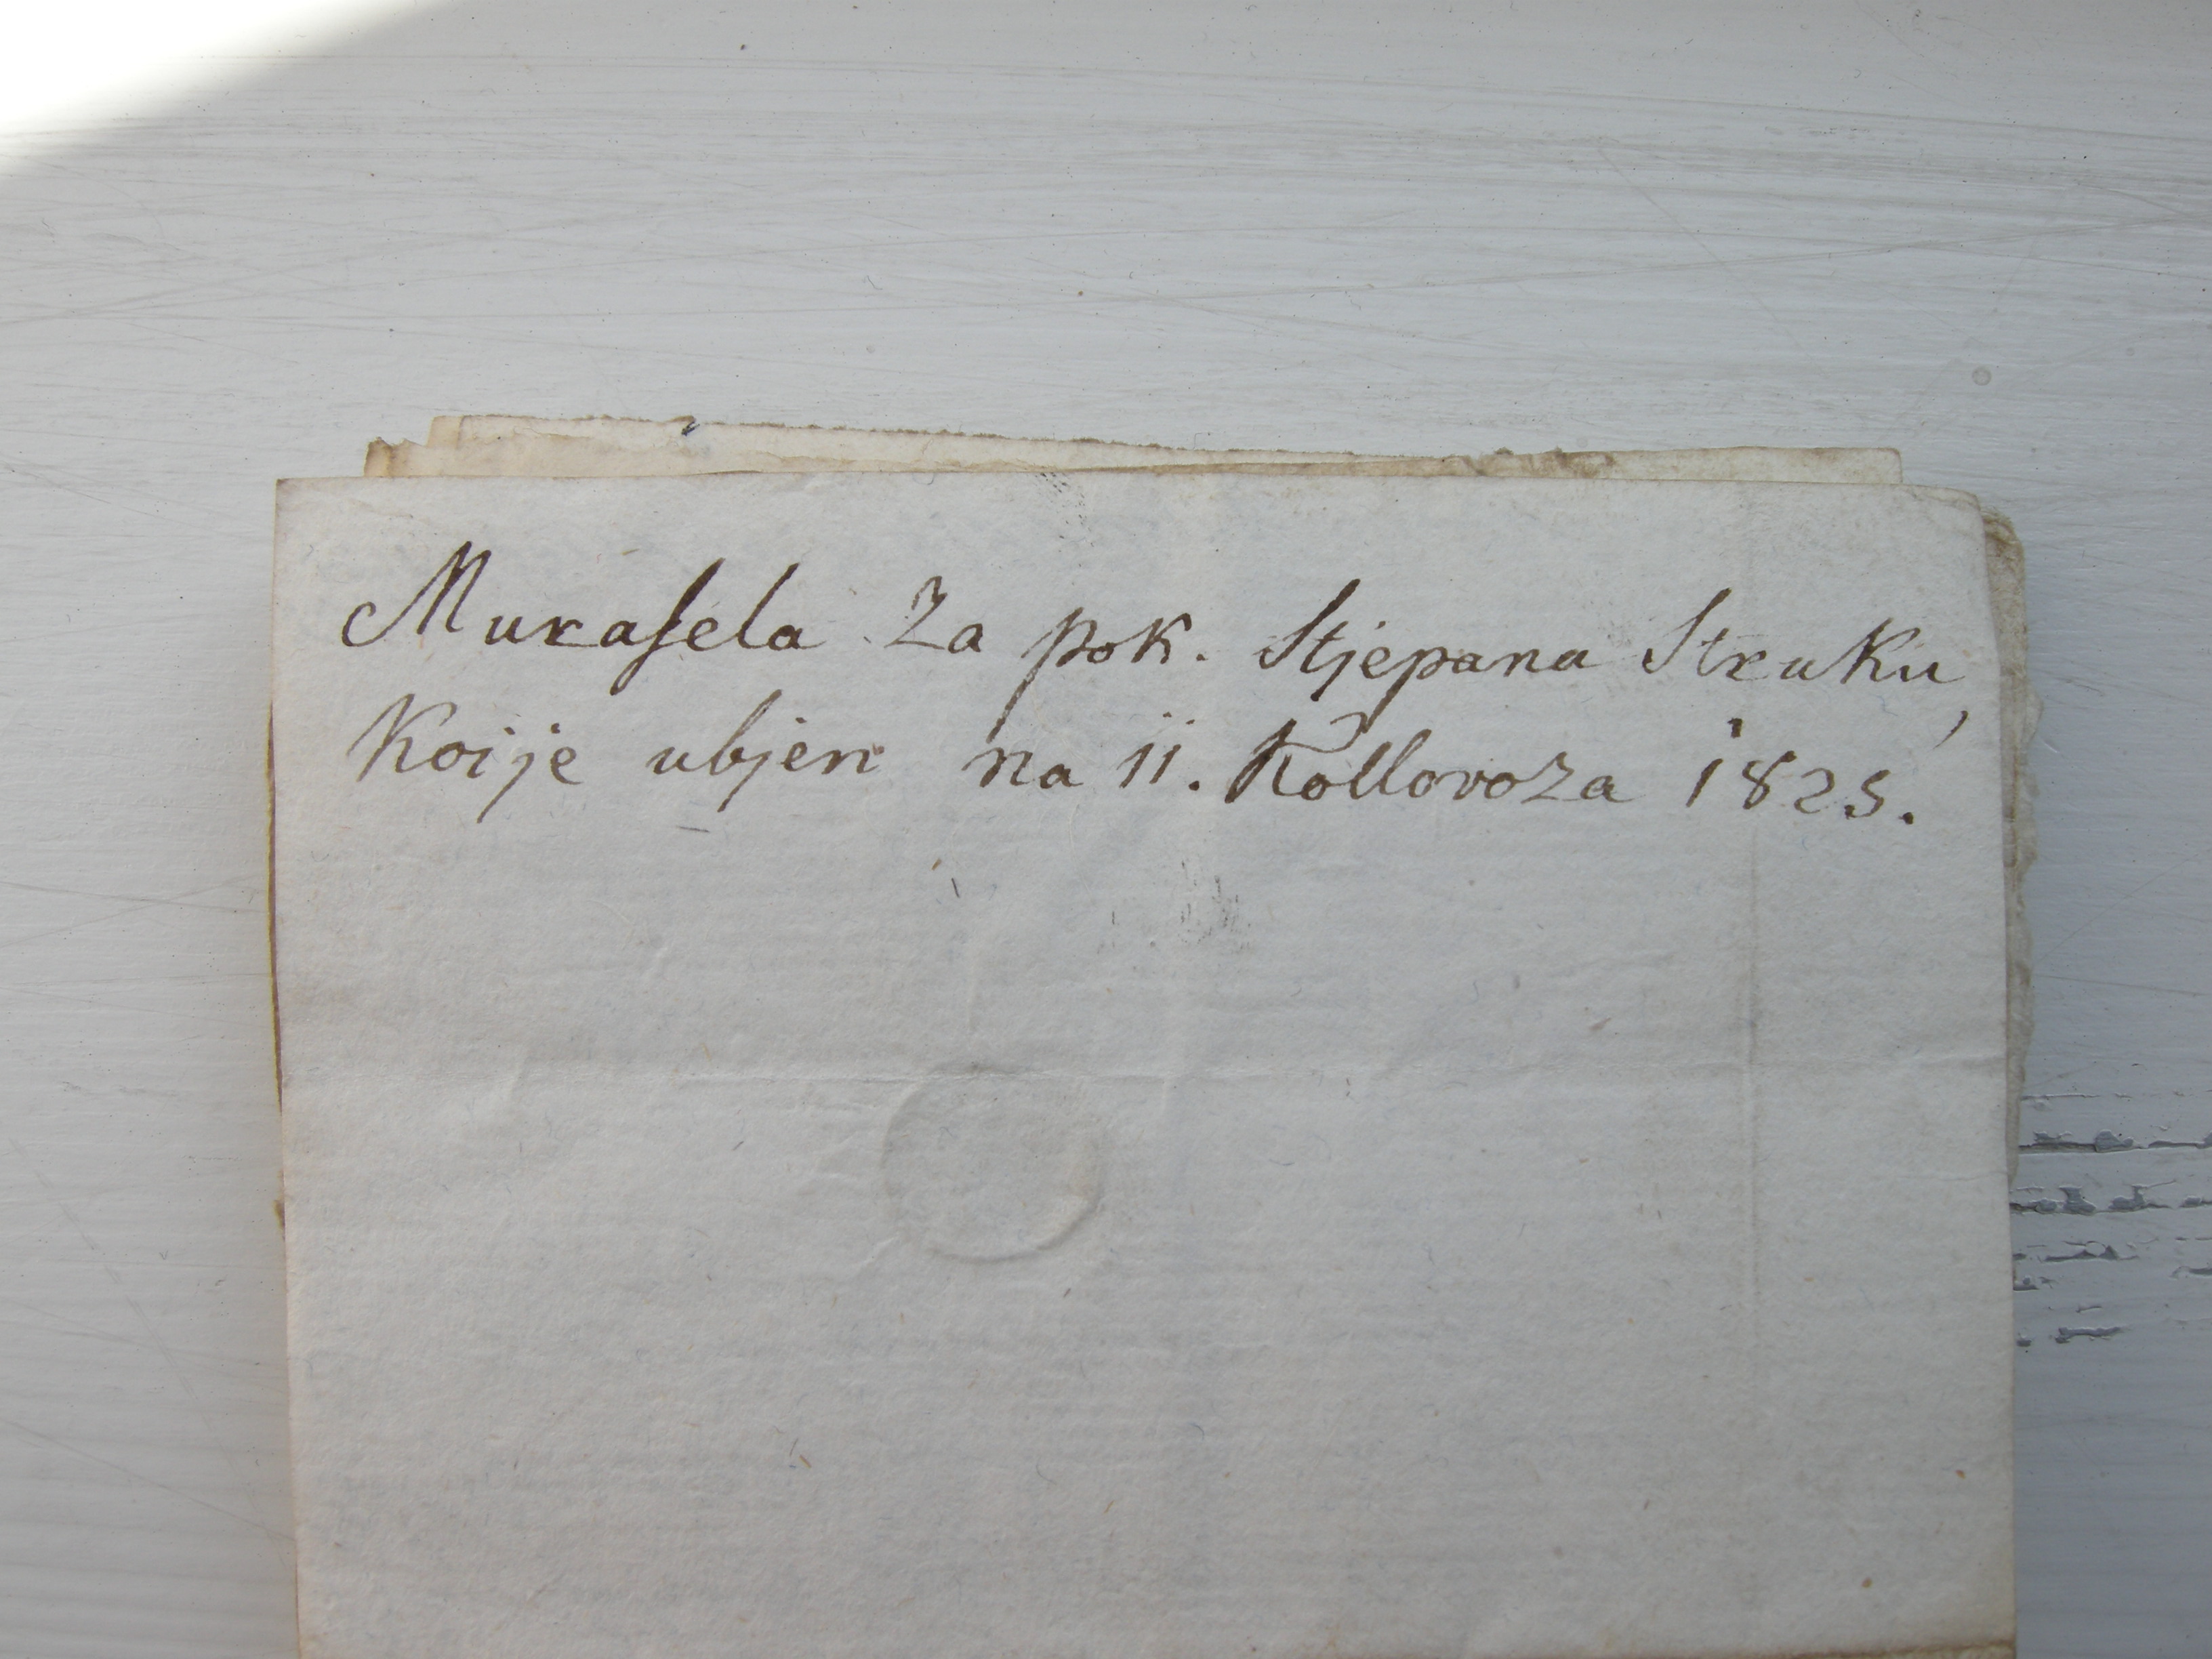 Muraſela Za pok. Stjepana Struku,
Koije ubjen na 11. Kollovoza 1825.